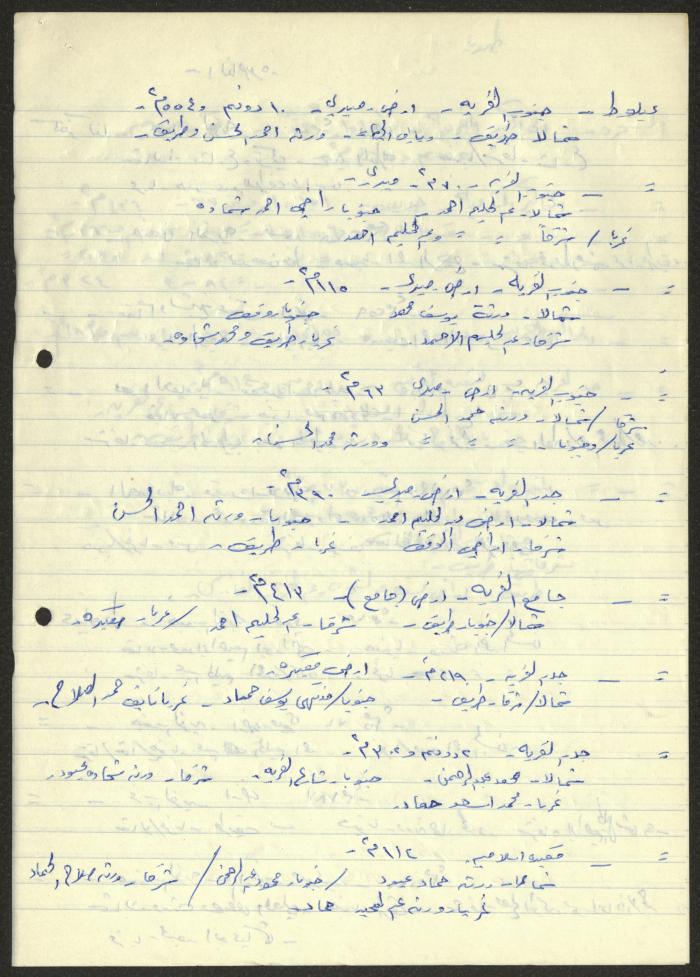 عيلوط - جنوب القرية - ارض ميري - ١٠ دونم و ٥٥٤ م٢ -
شمالا طريق - احمد الحسن وطريق -
= - جنوب القرية - م٢ - ميري -
شمالا - عبد الحليم احمد - جنوبا راجي احمد شحاده
غربا / شرقا = = وعبد الحليم احمد
= - جنوب القرية - ارض ميري - ١١٥ م٢ -
شمالا - ورثة يوسف محمود جنوبا وقف
شرقا عبد الحليم الاحمد - غربا طريق ومحمد شحاده -
= - جنوب القرية - ارض ميري ٦٣ م٢
شرقا / شمالا - ورثة حمد الحسن
غربا / وجنوبا - = = = وورثة محمد الحسن -
= - جدر القرية - ارض ميري - ٣٩٠ م٢ -
شمالا - ارض عبد الحليم احمد - جنوبا - ورثة احمد الحسن
شرقا - اراضي الوقف غربا - طريق -
= - جامع القرية - ارض (جامع) - ٤١٣ م٢ -
شمالا / جنوبا طريق - شرقا - عبد الحليم احمد / غربا - مقبره -
= - جدر القرية - ٢١٩ م٢ - ارض مقبره -
شمالا / شرقا طريق - جنوبا / يوسف حماد - غربا نايف حمد الصلاح -
= جدر القرية - ٢ دونم و ٣٠٢ م٢ -
شمالا - محمود عبد الرحمن - جنوبا - شارع القرية - شرقا - ورثة شحاده عبود -
غربا - محمد اسعد حماد -
= - مقبره اسلاميه - ١١٢ م٢ -
شمالا - ورثة حماد عبود / جنوبا - محمود عبد الرحمن / شرقا - ورثة صلاح الحماد
غربا - ورثة عبد المجيد حماد